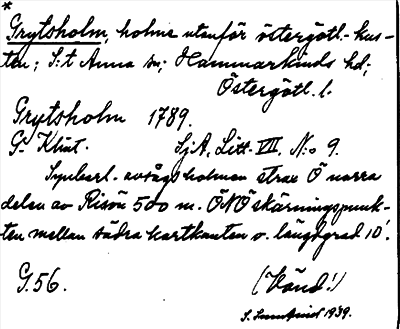 *
Grytsholm, holme utanför östergötl.-kus-
ten; S:t Anna sn; Hammarkinds hd;
Östergötl. l.
Grytsholm 1789.
G. Klint. SjA, Litt. VII, N:o 9.
Synbarl. avsågs holmen strax Ö norra
delen av Risön 500 m. ÖNÖ skärningspunk-
ten mellan södra kartkanten o. längdgrad 10'.
G. 56. (Vänd!)
1939.